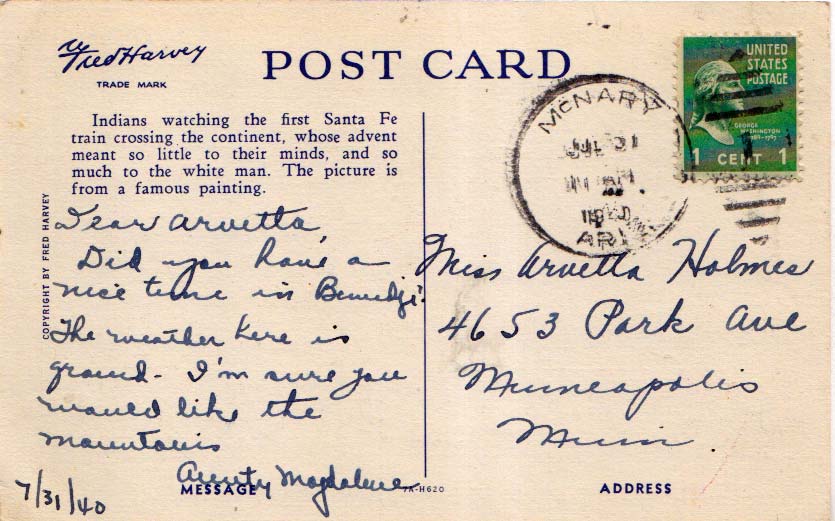 Fred Harvey
TRADE MARK
POST CARD
Indians watching the first Santa Fe
train crossing the continent, whose advent
meant so little to their minds, and so
much to the white man. The picture is
from a famous painting.
COPYRIGHT BY FRED HARVEY
Dear Arvetta
Did you have a
nice time in Bemidji?
The weather here is
grand - I'm sure you
would like the
mountains
Aunty Magdalene
7/31/40
MESSAGE
7A-H620
MCNARY
JUL 31
AM
ARIZ
UNITED
STATES
POSTAGE
GEORGE
WASHINGTON
1789-1797
1 CENT 1
Miss Arvetta Holmes
4653 Park Ave
Minneapolis
Minn
ADDRESS